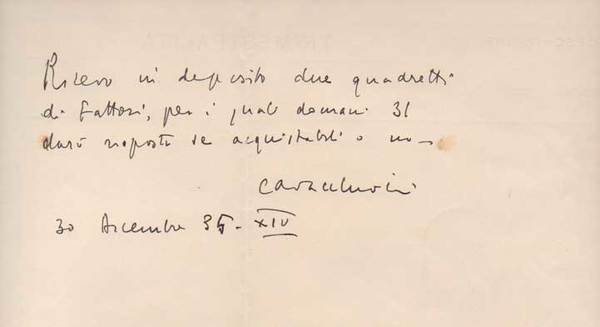 Ricevo in deposito due quadretti
di Fattori, per i quali domani 31
darò risposta se acquistabili o no -
30 Dicembre 35 - XIV